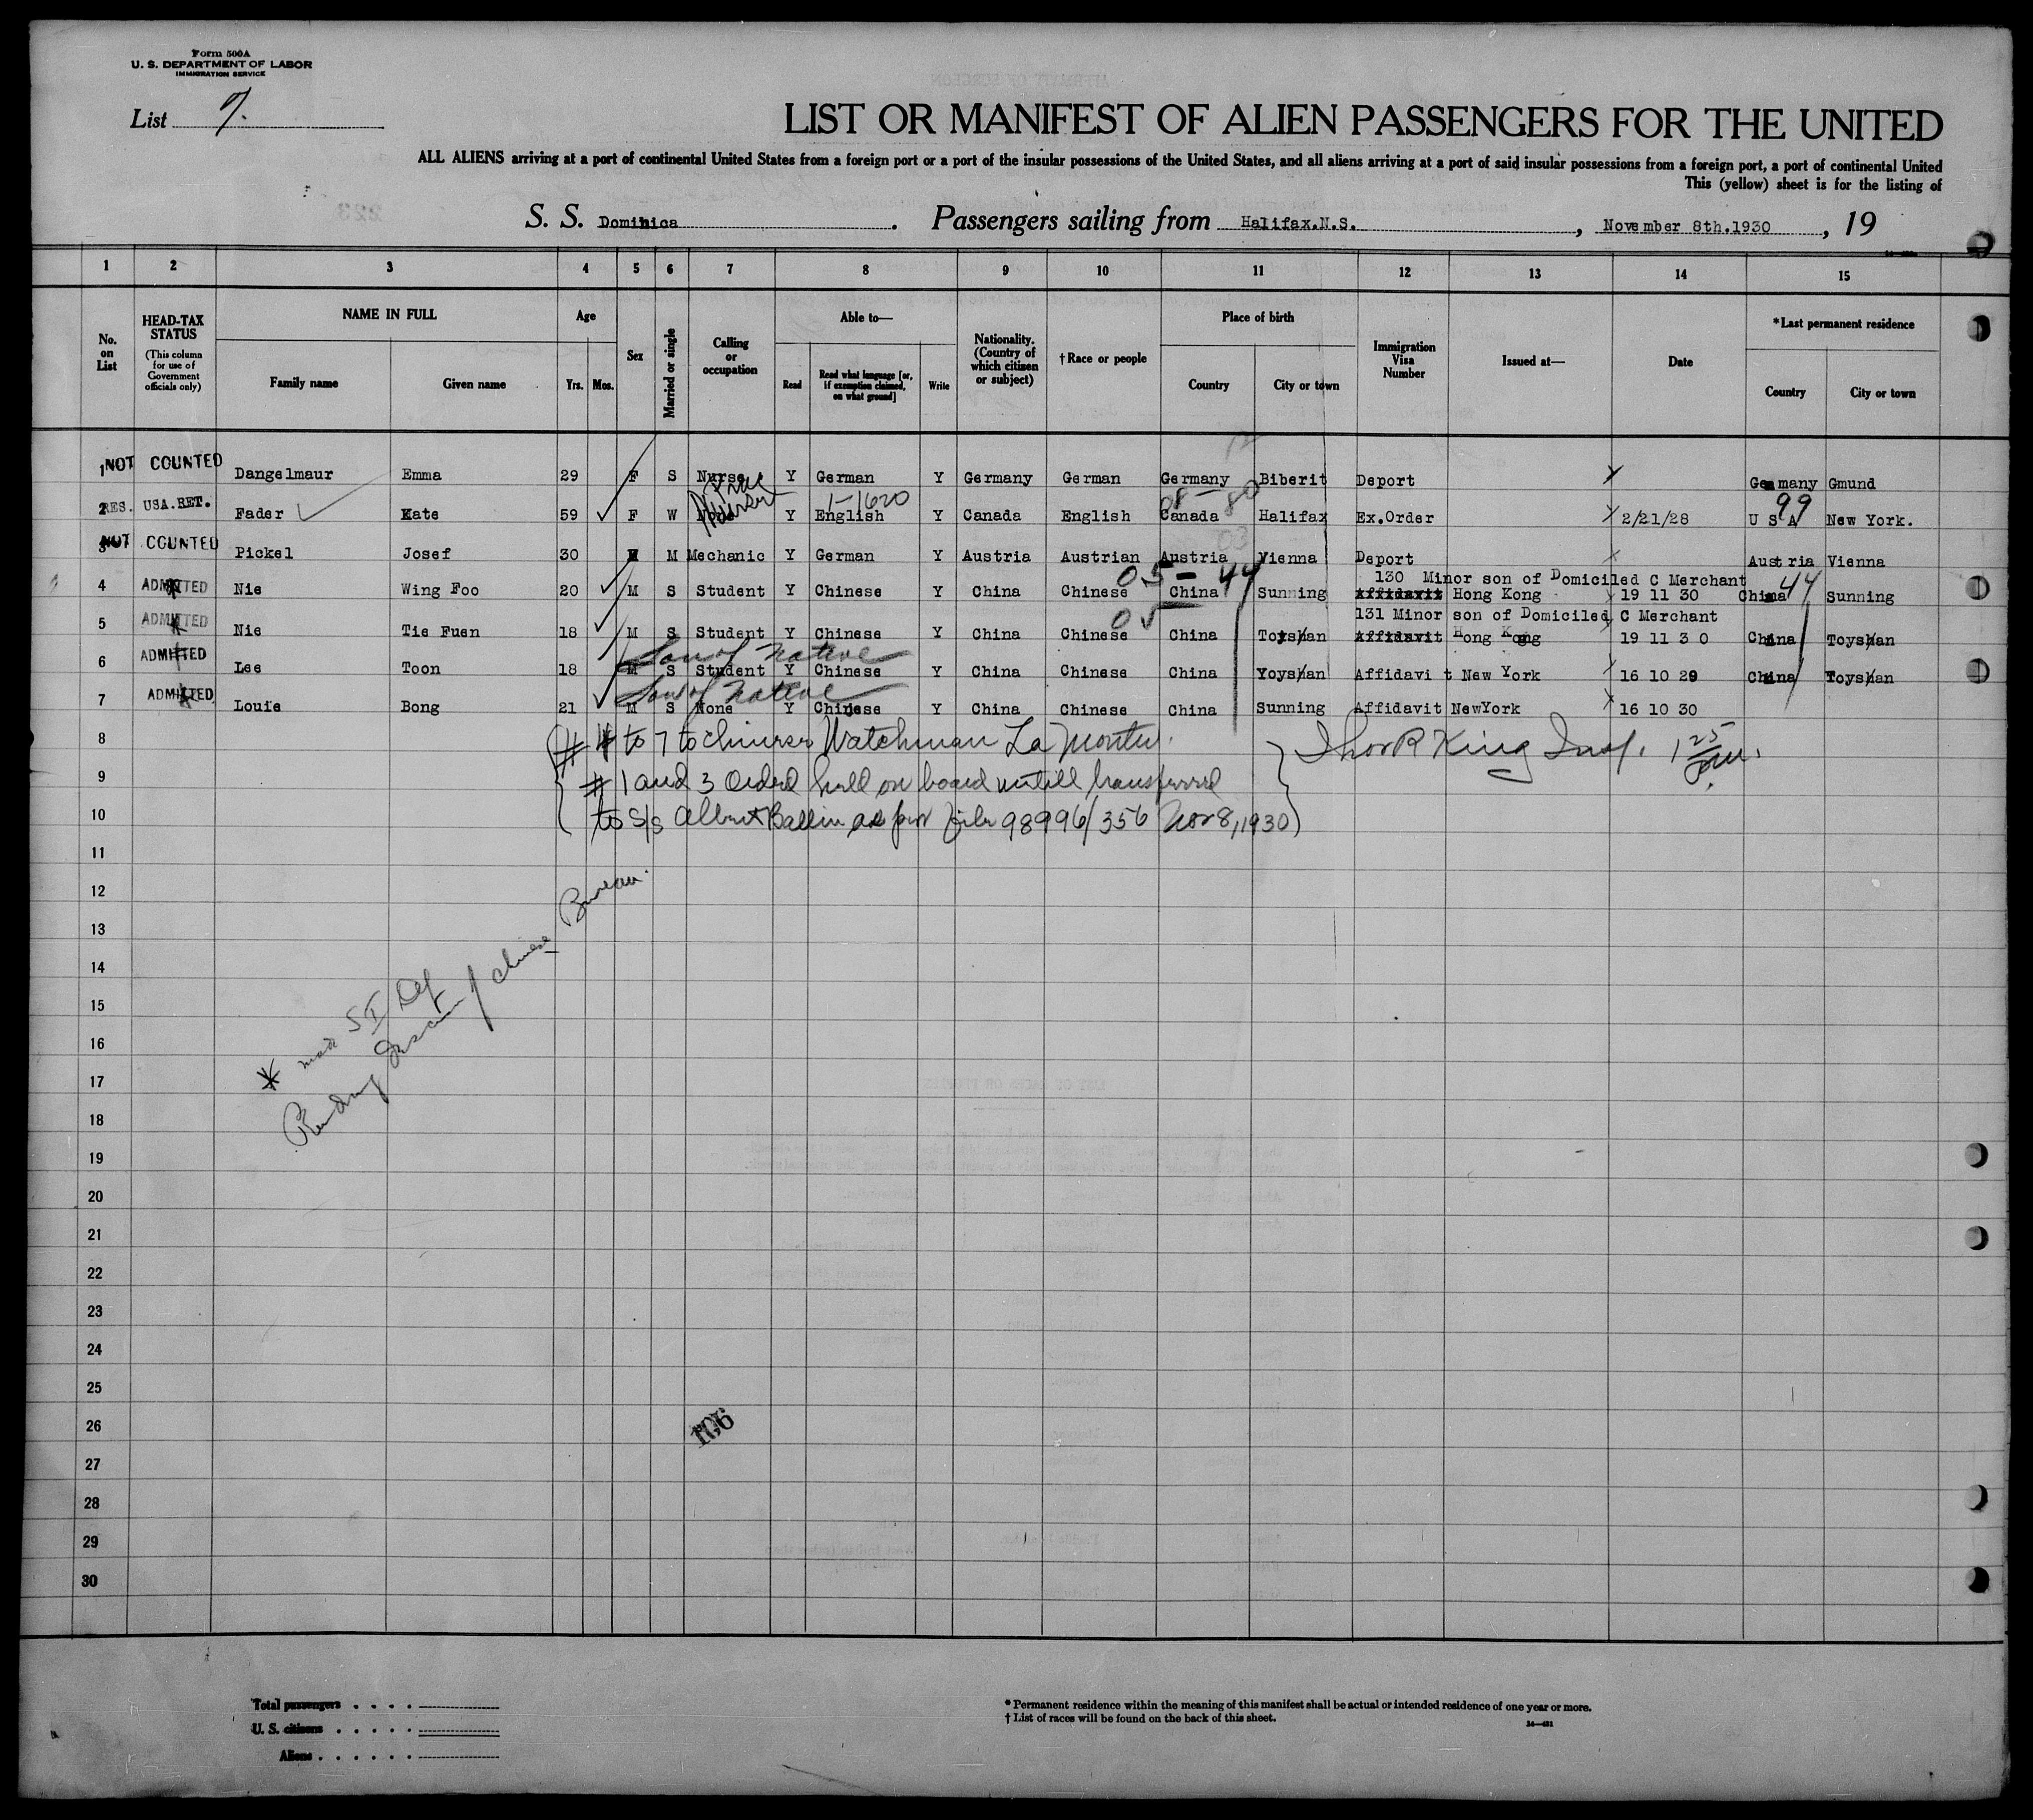 Form 500A
U. S. DEPARTMENT OF LABOR
IMMIGRATION SERVICE
List 7.
LIST OR MANIFEST OF ALIEN PASSENGERS FOR THE UNITED
ALL ALIENS arriving at a port of continental United States from a foreign port or a port of the insular possessions of the United States, and all aliens arriving at a port of said insular possessions from a foreign port, a port of continental United
This (yellow) sheet is for the listing of
S. S. Dominica. Passengers sailing from Halifax.N.S., November 8th.1930, 19
1 2 3 4 5 6 7 8 9 10 11 12 13 14 15
No. on List
HEAD-TAX STATUS (This column for use of Government officials only)
NAME IN FULL Family name Given name
Age Yrs. Mos.
Sex
Married or single
Calling or occupation
Able to— Read Read what language [or, if exemption claimed, on what ground] Write
Nationality. (Country of which citizen or subject)
†Race or people
Place of birth Country City or town
Immigration Visa Number
Issued at—
Date
*Last permanent residence Country City or town
1 NOT COUNTED Dangelmaur Emma 29 F S Nurse Y German Y Germany German Germany Biberit Deport Germany Gmund
1-1620 08-80 99
2 RES. USA.RET. Fader Kate 59 F W Nurse Y English Y Canada English Canada Halifax Ex.Order 2/21/28 U S A New York.
03
3 NOT COUNTED Pickel Josef 30 M M Mechanic Y German Y Austria Austrian Austria Vienna Deport Austria Vienna
05-44 130 Minor son of Domiciled C Merchant 44
4 ADMITTED Nie Wing Foo 20 M S Student Y Chinese Y China Chinese China Sunning Affidavit Hong Kong 19 11 30 China Sunning
05 131 Minor son of Domiciled C Merchant
5 ADMITTED Nie Tie Fuen 18 M S Student Y Chinese Y China Chinese China Toyshan Affidavit Hong Kong 19 11 3 0 China Toyshan
Son of Native
6 ADMITTED Lee Toon 18 M S Student Y Chinese Y China Chinese China Yoyshan Affidavi t New York 16 10 29 China Toyshan
Son of Native
7 ADMITTED Louie Bong 21 M S None Y Chinese Y China Chinese China Sunning Affidavit NewYork 16 10 30
8 # 4 to 7 to chinese Watchman La
Insp. 1 25
9 # 1 and 3 Orded held on board untill transferred
10 to S/S Albert Ballin as per file 98996/356 Nov 8, 1930
11
12
13
14
15
16
17
18
19
20
21
22
23
24
25
26
27
28
29
30
* made S I
Pending of Chinese Bureau.
106
Total passengers
U. S. citizens
Aliens
* Permanent residence within the meaning of this manifest shall be actual or intended residence of one year or more.
† List of races will be found on the back of this sheet.
14—421